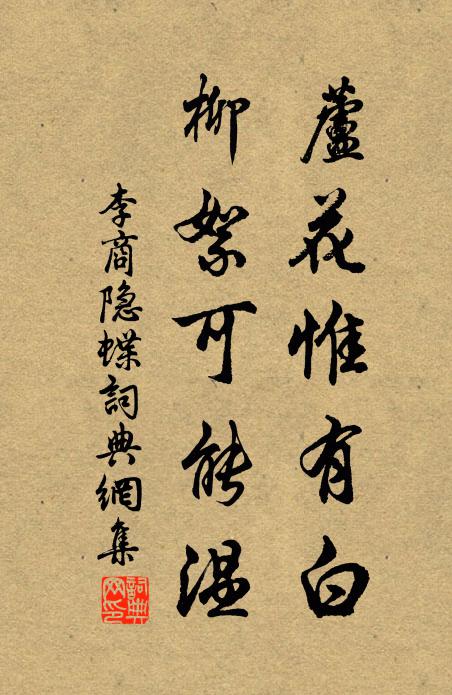 蘆花惟有白
柳絮可能温
李商隐蝶詞典網集
詞典网印